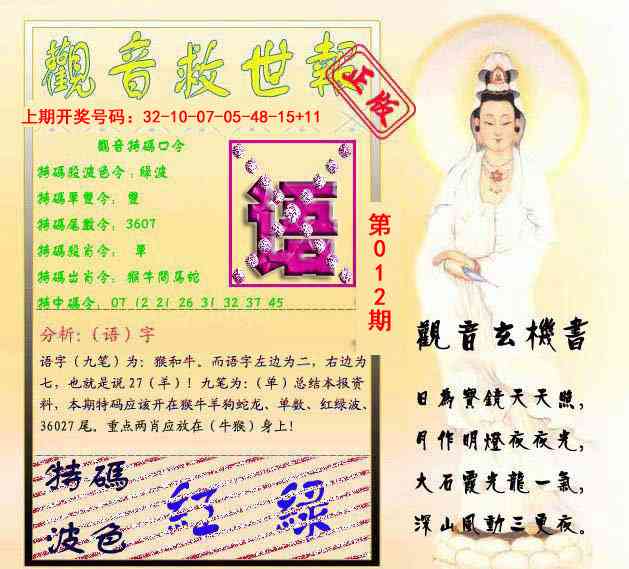 觀音救世報
正版
上期开奖号码：32-10-07-05-48-15+11
觀音特碼口令
特碼段波色令：綠波
特碼單雙令： 雙
特碼尾數令： 3607
特碼段肖令： 單
特碼出肖令： 猴牛閗馬蛇
特中碼令： 07 12 21 26 31 32 37 45
语
第012期
分析:（语）字
语字（九笔）为：猴和牛。而语字左边为二，右边为
七，也就是说27（羊）！九笔为:（单）总结本报资
料，本期特码应该开在猴牛羊狗蛇龙、单数、红绿波、
36027尾。重点两肖应放在（牛猴）身上！
特碼
波色
紅 綠
觀音玄機書
日為寶鏡天天照，
月作明燈夜夜光，
大石霞光龍一氣，
深山風動三更夜。